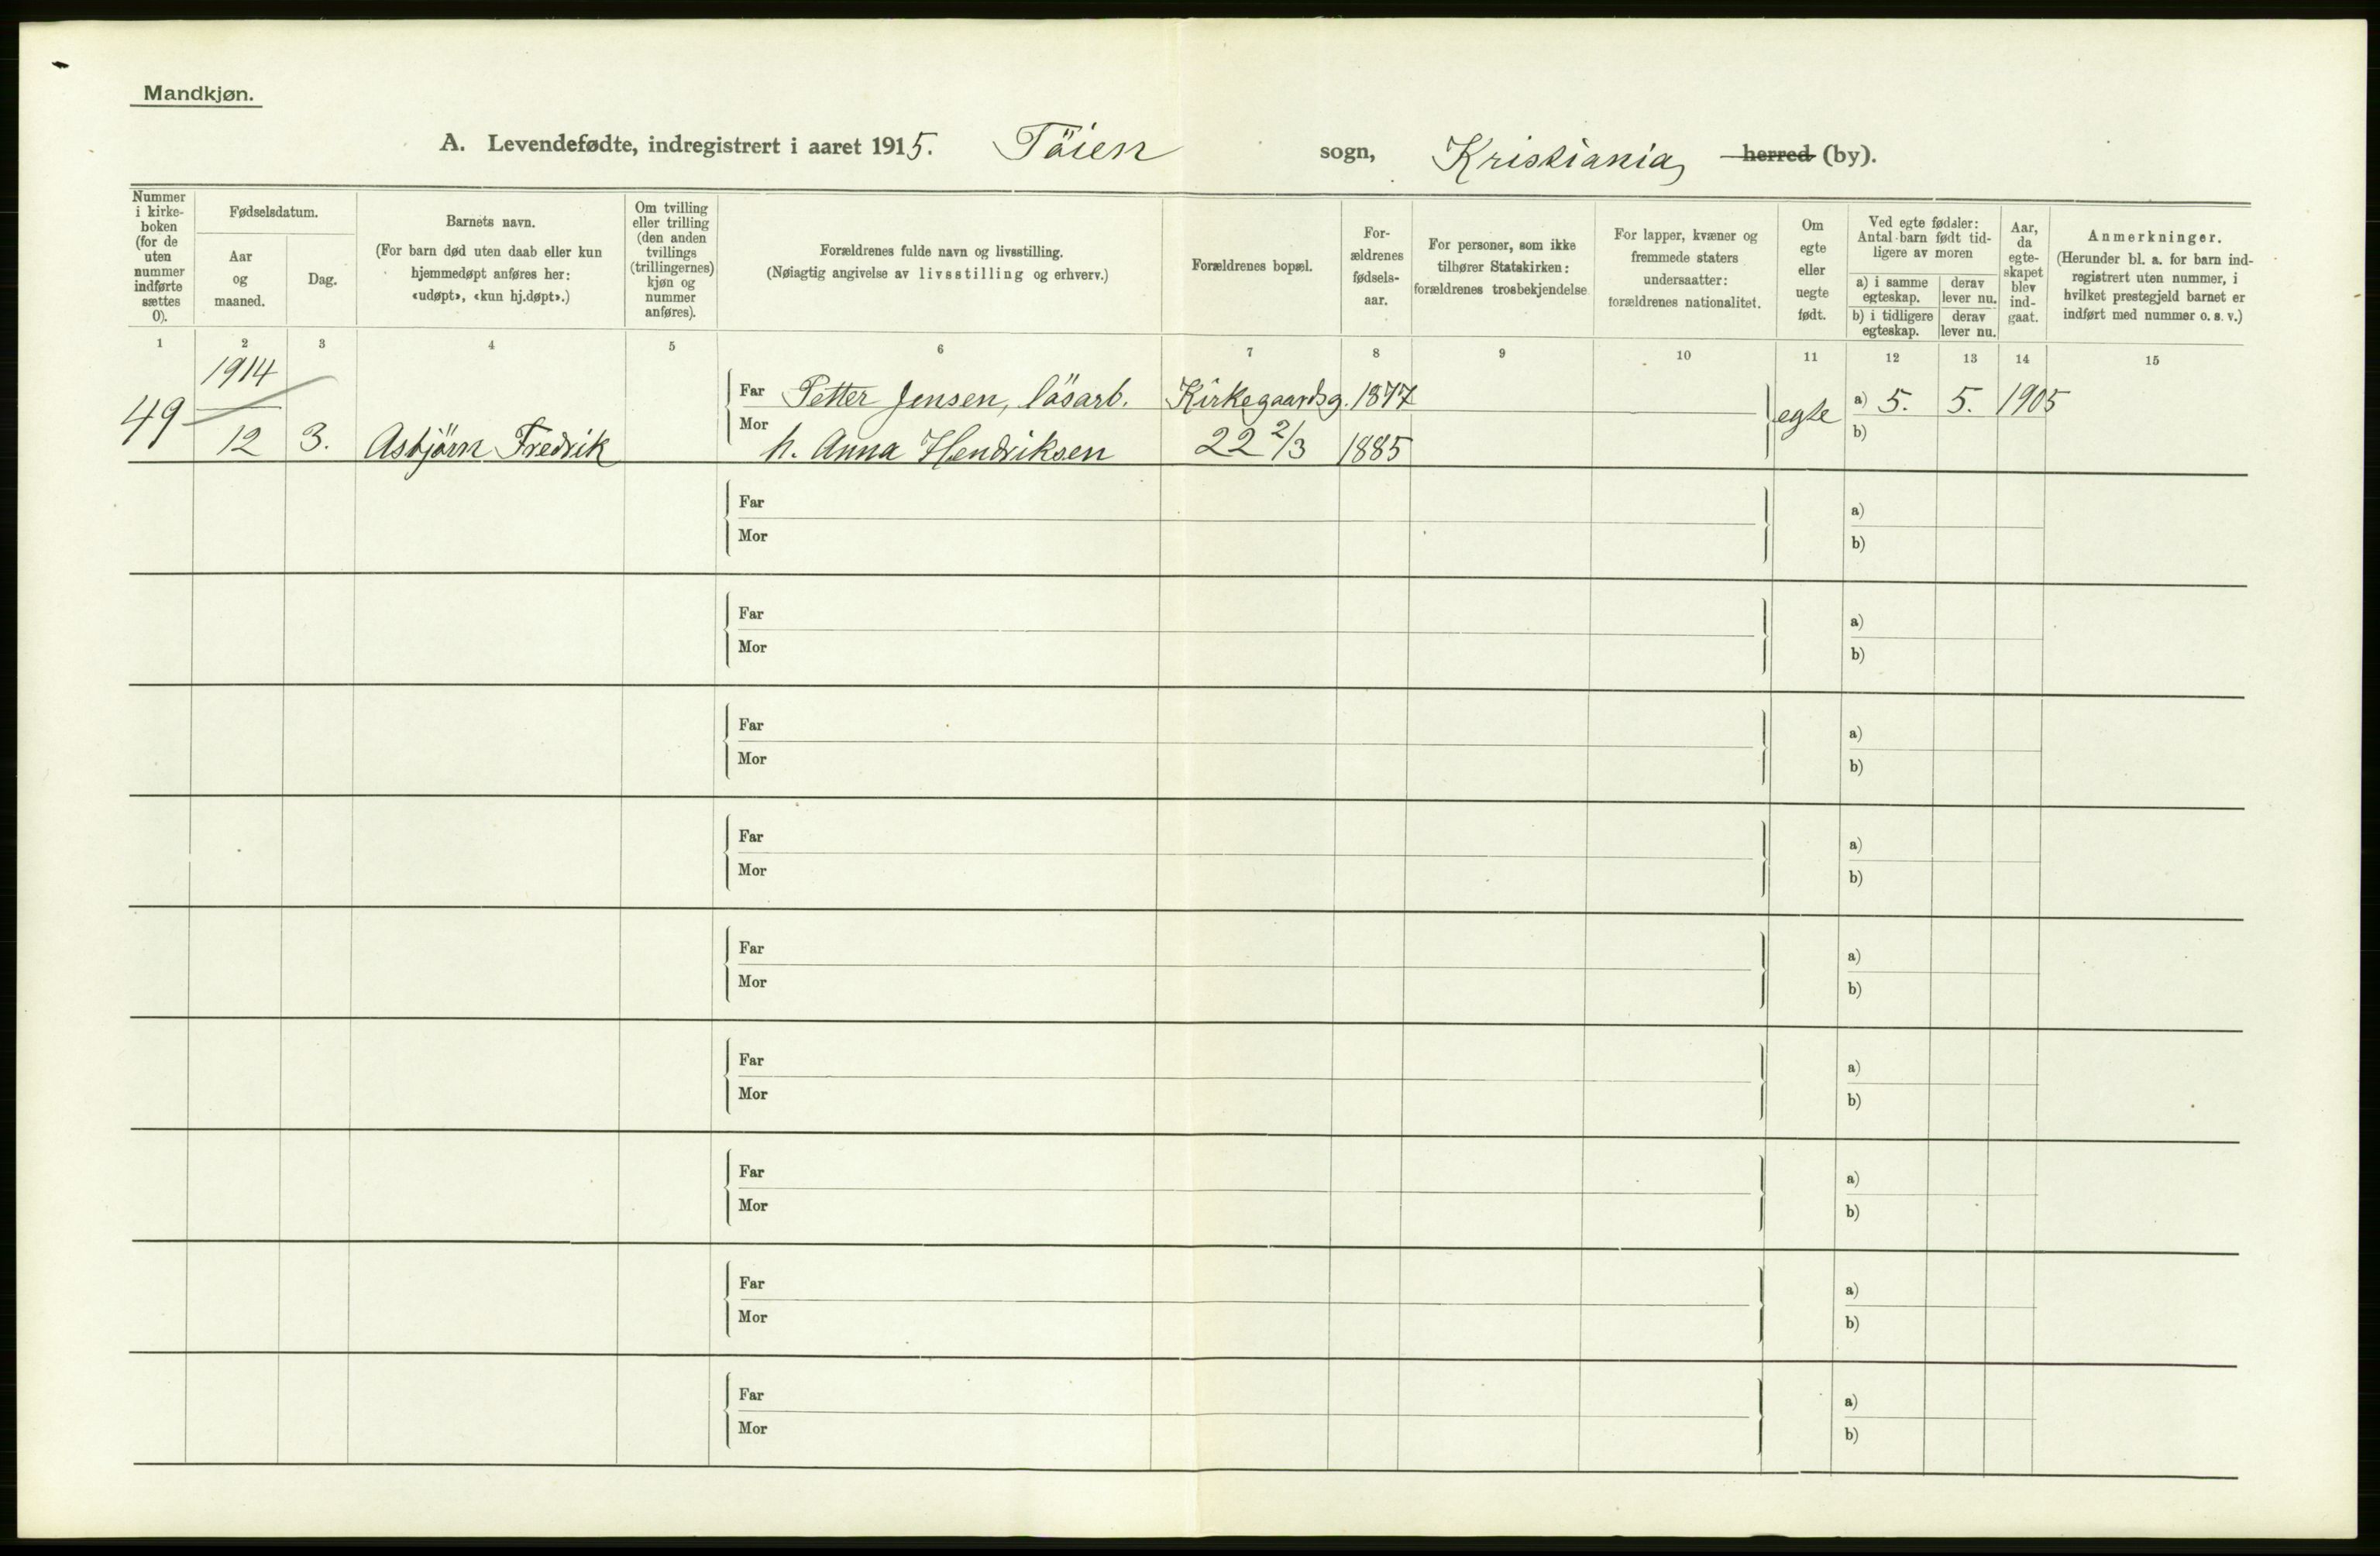 Mandkjøn.
A. Levendefødte, indregistrert i aaret 1915. Töien sogn, Kristiania herred (by).
Nummer i kirke-boken (for de uten nummer indførte sættes 0).
Fødselsdatum.
Aar og maaned.
Dag.
Barnets navn.
(For barn død uten daab eller kun hjemmedøpt anføres her: «udøpt», «kun hj.døpt».)
Om tvilling eller trilling (den anden tvillings (trillingernes) kjøn og nummer anføres).
Forældrenes fulde navn og livsstilling.
(Nøiagtig angivelse av livsstilling og erhverv.)
Forældrenes bopæl.
For-ældrenes fødsels-aar.
For personer, som ikke tilhører Statskirken: forældrenes trosbekjendelse
For lapper, kvæner og fremmede staters undersaatter: forældrenes nationalitet.
Om egte eller uegte født.
Ved egte fødsler: Antal barn født tid-ligere av moren
a) i samme egteskap.
derav lever nu.
b) i tidligere egteskap.
derav lever nu.
Aar, da egte-skapet blev ind-gaat.
Anmerkninger.
(Herunder bl. a. for barn ind-registrert uten nummer, i hvilket prestegjeld barnet er indført med nummer o. s. v.)
1 2 3 4 5 6 7 8 9 10 11 12 13 14 15
1914
49 12 3. Asbjörn Fredrik
Far Petter Jensen, lösarb. Kirkegaardsg. 1877 egte a) 5. 5. 1905
Mor h. Anna Hendriksen 22 2/3 1885 b)
Far a)
Mor b)
Far a)
Mor b)
Far a)
Mor b)
Far a)
Mor b)
Far a)
Mor b)
Far a)
Mor b)
Far a)
Mor b)
Far a)
Mor b)
Far a)
Mor b)